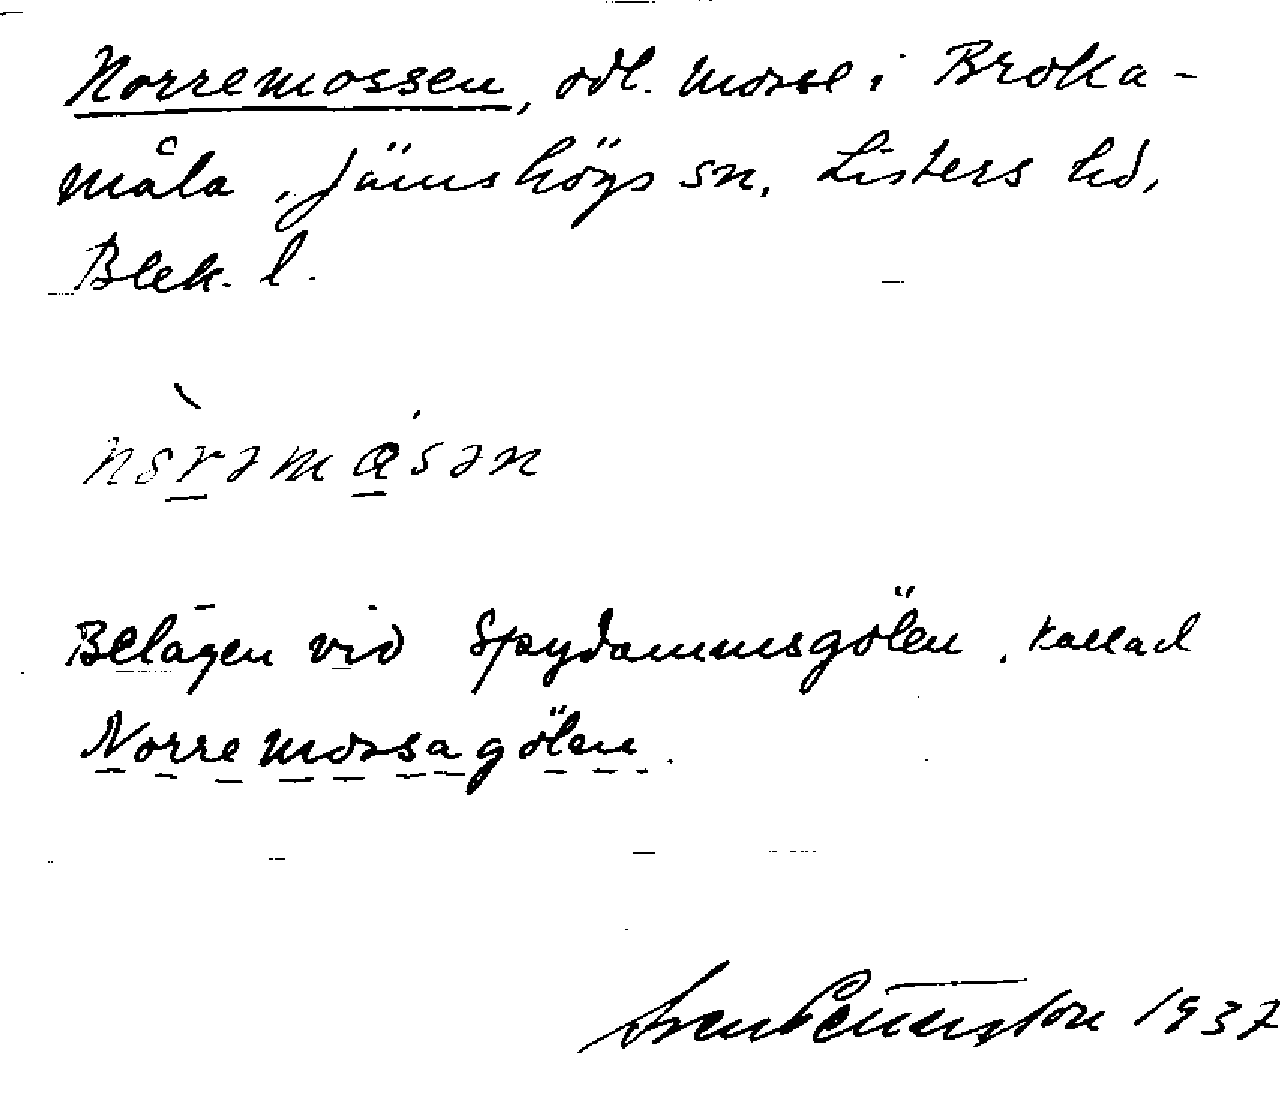 Norremossen, odl. mosse i Broka-
måla, Jämshögs sn, Listers hd,
Blek. l.
Belägen vid Spydammsgölen, kallad
Norremossagölen.
Sven Pettersson 1937